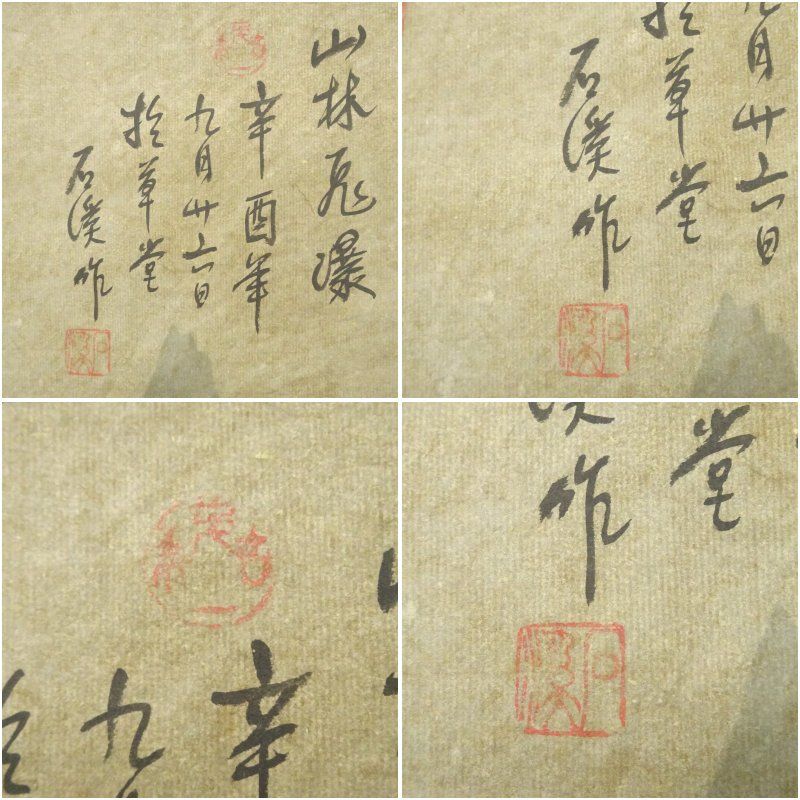 山林飛瀑
辛酉年
九月廿六日
於草堂
石溪作
九月廿六日
於草堂
石溪作
辛
九
於
堂
溪作